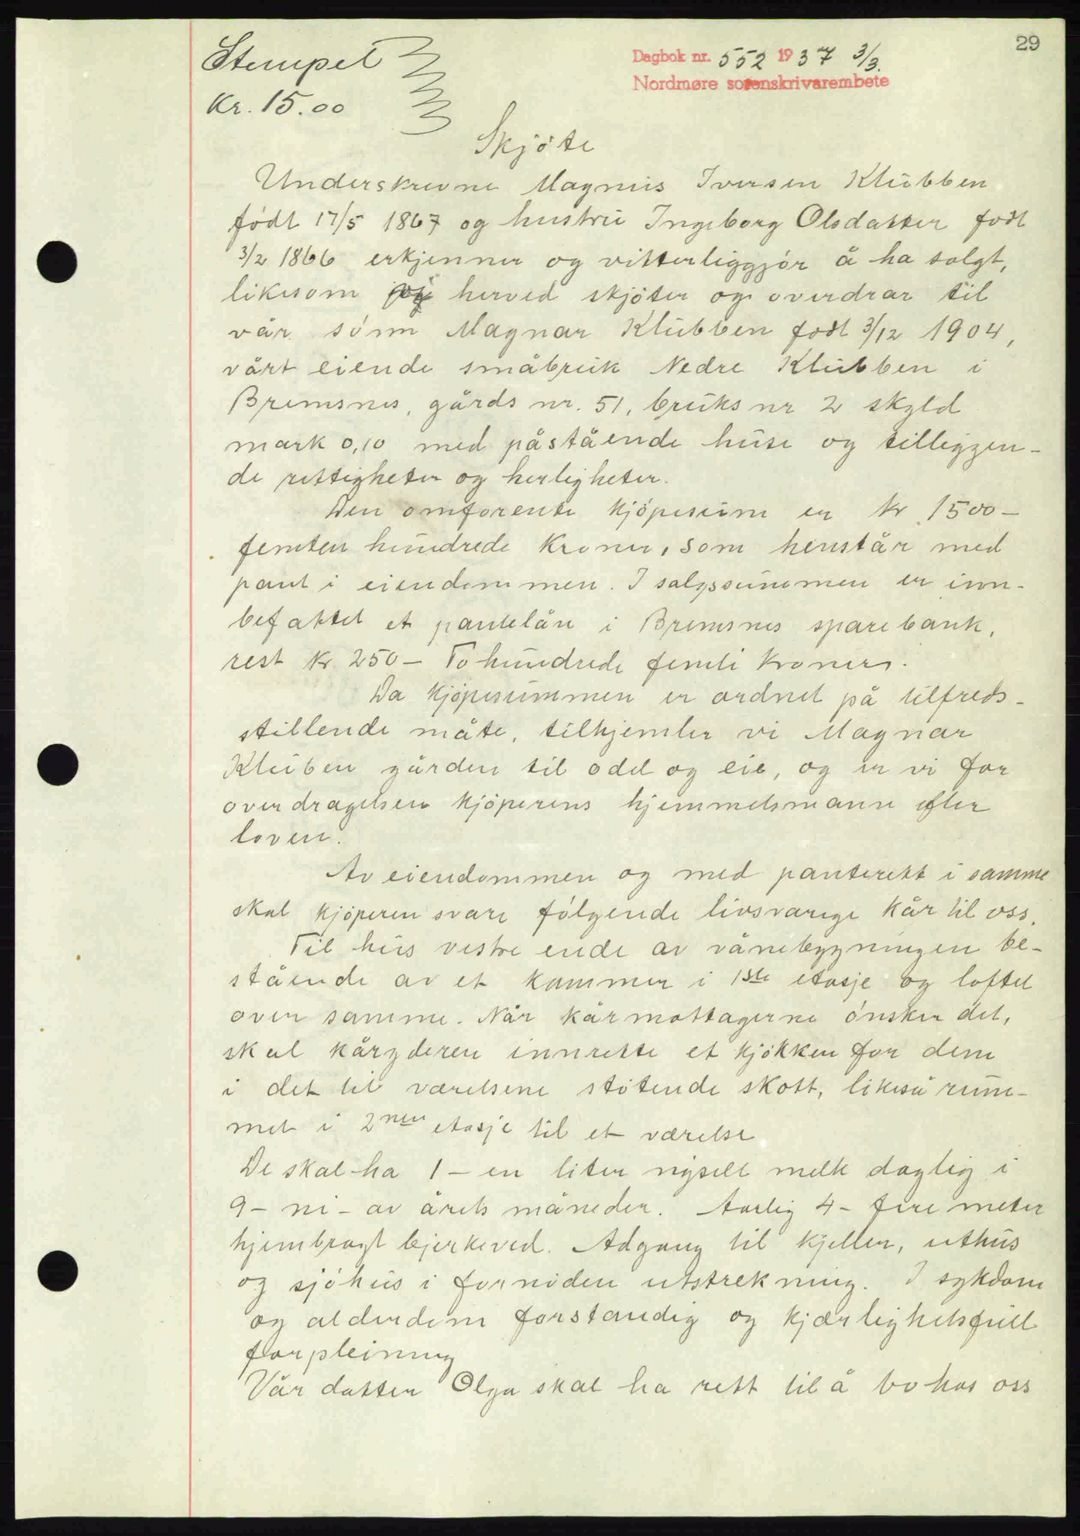 29
Stempel
Kr. 15.00
Dagbok nr. 552 1937 3/3.
Nordmøre sorenskrivarembete
Skjöte
Underskrevne Magnus Iversen Klubben
född 17/5 1867 og hustru Ingeborg Olsdatter född
3/2 1866 erkjenner og vitterliggjör å ha solgt,
likesom herved skjöter og overdrar til
vår sönn Magnar Klubben född 3/12 1904,
vårt eiende småbruk Nedre Klubben i
Bremsnes, gårds nr. 51, bruks nr 2 skyld
mark 0,10 med påstående huse og tilleggen-
de rettigheter og herligheter.
Den omforente kjöpesum er kr 1500-
femten hundrede kroner, som henstår med
pant i eiendommen. I salgssummen er inn-
befattet et pantelån i Bremsnes sparebank,
rest kr. 250- To hundrede femti kroner.
Da kjöpesummen er ordnet på tilfreds-
stillende måte, tilhjemler vi Magnar
Kluben gården til odel og eie, og er vi for
overdragelsen kjöperens hjemmelsmann efter
loven.
Av eiendommen og med panterett i samme
skal kjöperen svare fölgende livsvarige kår til oss.
Til hus vestre ende av vånebygningen be-
stående av et kammer i 1ste etasje og loftet
over samme. Når kårmottagerne önsker det,
skal kårgderen innrette et kjökken for dem
i det til værelsene stötende skott, likeså rum-
met i 2nen etasje til et værelse
De skal ha 1- en liter nysilt melk daglig i
9- ni- av årets måneder. Aarlig 4- fire meter
hjembragt bjerkeved. Adgang til kjeller, uthus
og sjöhus i fornöden utstrekning. I sykdom
og alderdom forstandig og kjærlighetsfull
forpleining
Vår datter Olga skal ha rett til å bo hos oss